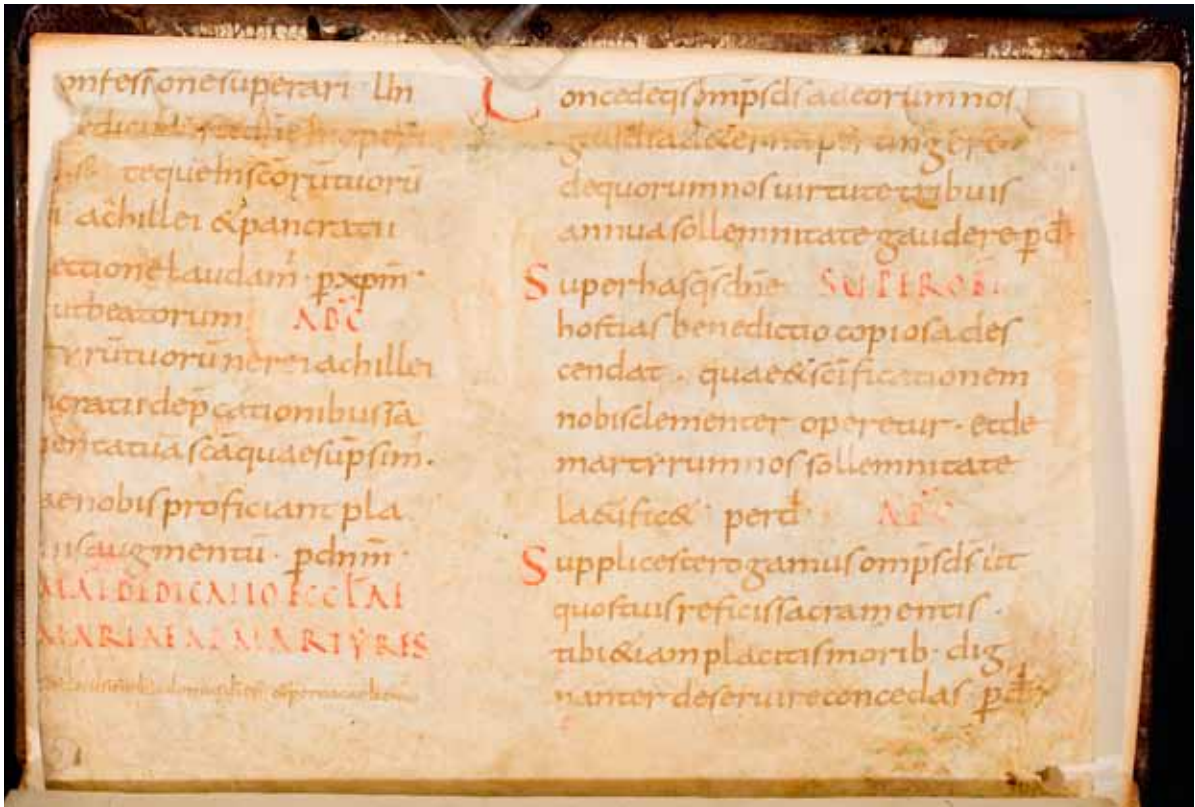 onfessionesuperari Un
tequeInscōrūtuorū
i achillei &pancratii
ectionelaudam̄ p̄xpm̄
utbeatorum AB̄C
tyrūtuorūnerei achillei
ncratiidep̄cationibussa
mentatuascāquaesūpsim̄.
aenobisproficiantpla
nisaugmentū . p̄dnm̄.
MAI DEDICATIO ECCL̄AE
MARIAE AD MARTYRES
Concedeqs̄omp̄sds̄adeorumnos
gaudia&ernapertingere
dequorumnosuirtutetribuis
annuasollemnitategaudere p̄ d
Superhasqs̄dn̄e SUPER OB̄L
hostias benedictio copiosa des
cendat . quae&sc̄ificationem
nobisclementer operetur . etde
martyrumnossollemnitate
laetific& perd AB̄C
Supplicesterogamusomp̄sds̄ut
quostuisreficissacramentis .
tibi&iamplacitismorib. dig
nanterdeseruireconcedas p̄d